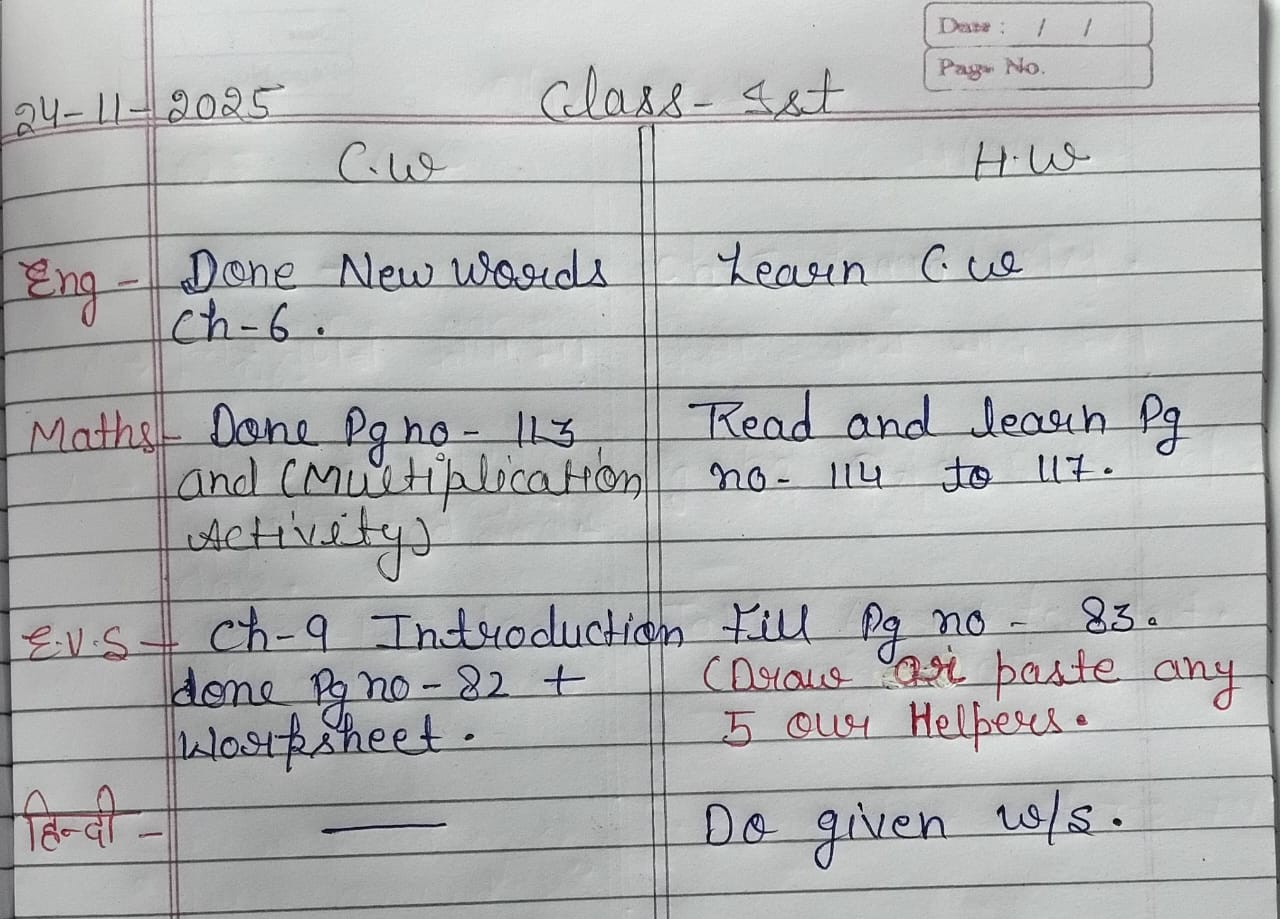 Date : / /
Page No.
24-11-2025 Class- Ist
C.W H.W
Eng - Done New Words Learn C.w
Ch-6.
Maths - Done Pg no - 113 Read and learn Pg
and (Multiplication no- 114 to 117.
Activity)
E.V.S - Ch-9 Introduction Fill Pg no - 83.
done Pg no - 82 + (Draw or paste any
Worksheet. 5 our Helpers.
हिन्दी - — Do given w/s.